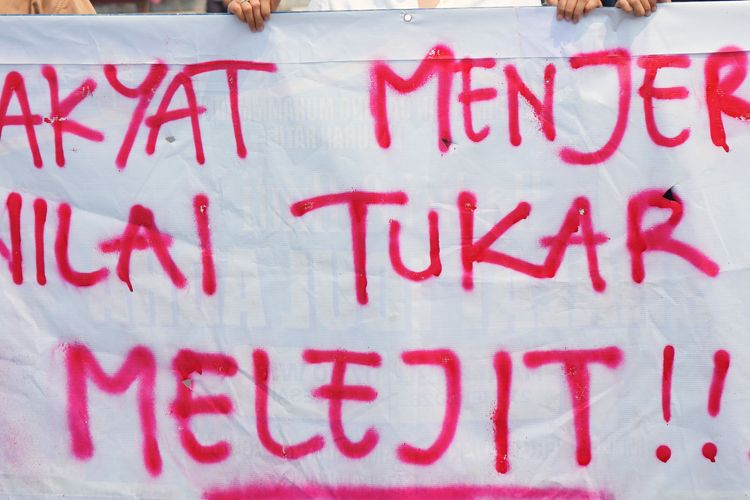 AKYAT MENJER
NILAI TUKAR
MELEJIT!!